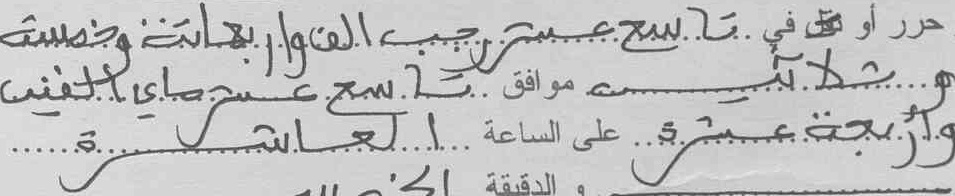 حرر أو في تاسع عشر رجب الف وأربعمائة وخمسة
وثلاثين موافق تاسع عشر ماي ألفين
وأربعة عشرة على الساعة العاشرة
و الدقيقة